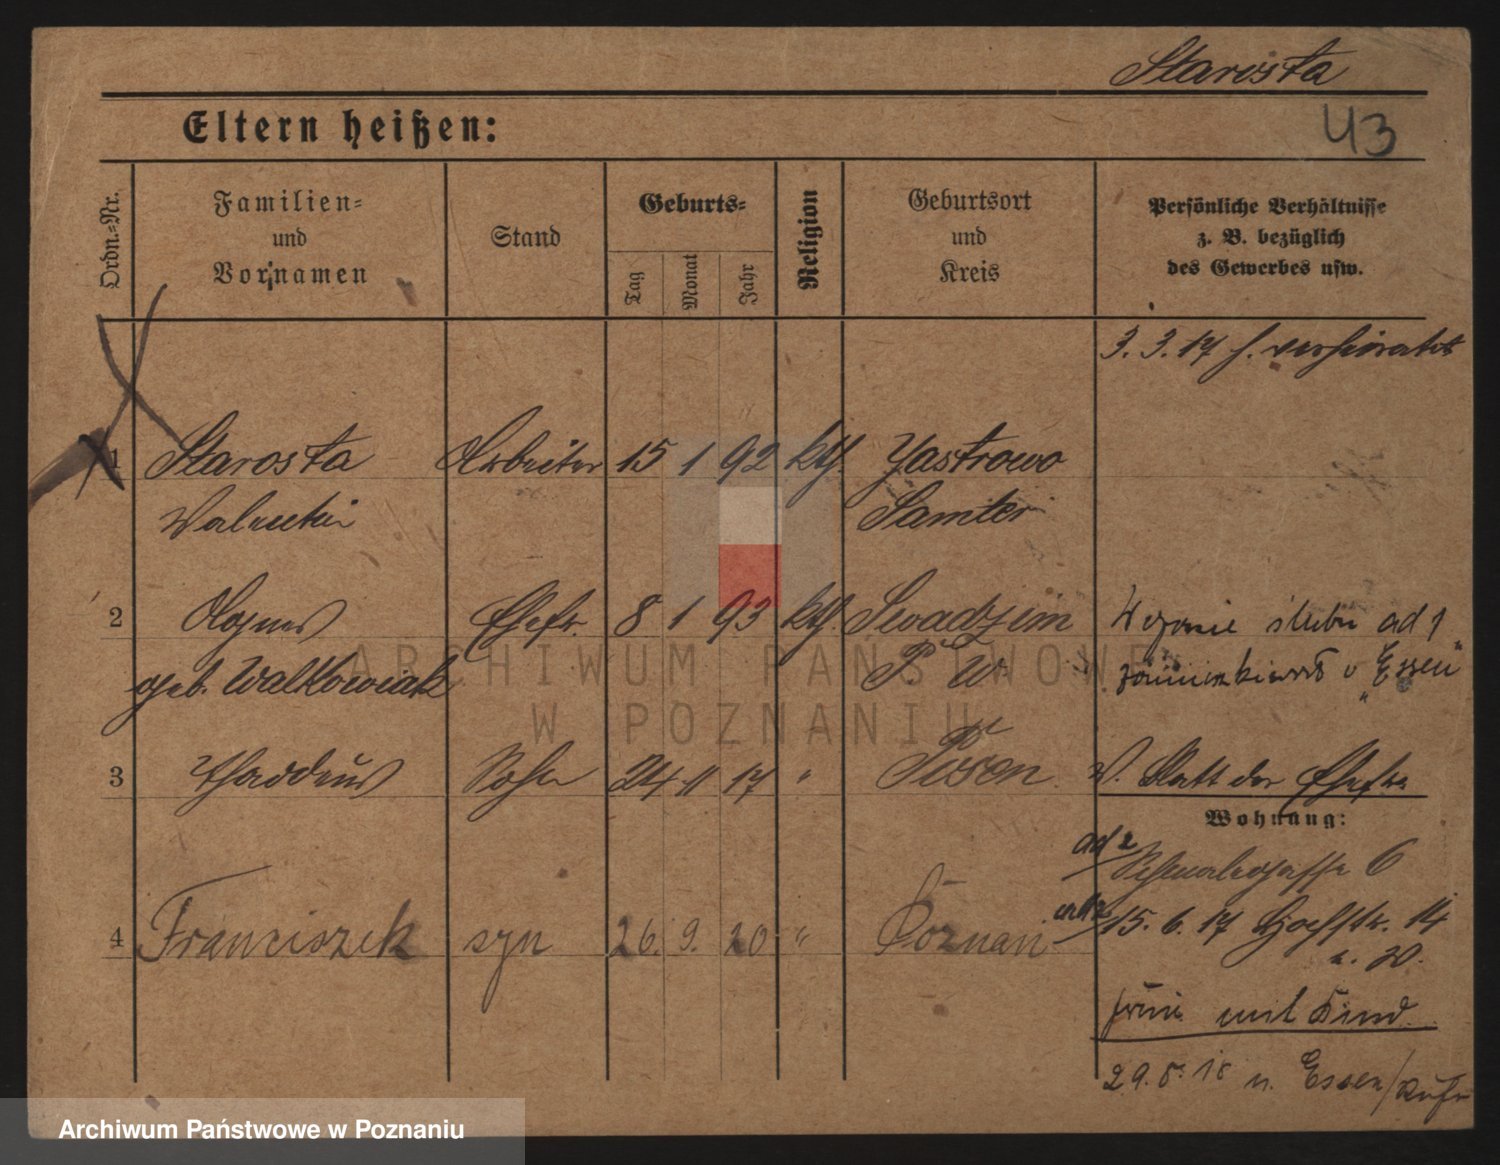 Starosta
43
Eltern heißen:
Ordn.=Nr.
Familien=
und
Vornamen
Stand
Geburts=
Tag
Monat
Jahr
Religion
Geburtsort
und
Kreis
Persönliche Verhältnisse
z. B. bezüglich
des Gewerbes usw.
3. 3. 17 h. verheiratet
1 Starosta Arbeiter 15 1 92 kth. Jastrowo
Walentin Samter
2 Agnes Ehefr. 8 1 93 kth. Swadzim
geb. Walkowiak P. W.
ślubu ad 1
"Essen"
3 Thaddeus Sohn 24 11 17 " Posen W. Statt der Ehefr.
Wohnung:
ad 2
6
4 Franciszek syn 26. 9. 20 " Poznań
ad 2 15. 6. 17 14
n. W.
mit Kind
29. 8. 18 n. Essen/Ruhr
ARCHIWUM PAŃSTWOWE
W POZNANIU
Archiwum Państwowe w Poznaniu